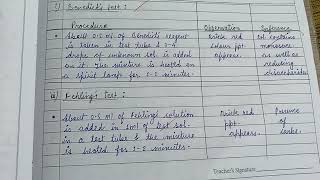 i) Benedict's Test :
Procedure Observation Inference
• About 0.5 ml of Benedict's reagent Brick red Sol. contains
is taken in test tube & 3-4 colour ppt. monosacc.
drops of unknown sol. is added appears. as well as
on it. The mixture is heated on reducing
a spirit lamp for 1-2 minutes. disaccharides
ii) Fehling's Test :
• About 0.5 ml of Fehling's solution Brick red Presence
is added in of test sol. ppt. of
in a test tube & the mixture appears. carbs.
is heated for 1-2 minutes.
Teacher's Signature